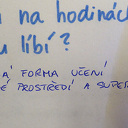 na hodinách
líbí?
FORMA UČENÍ
PROSTŘEDÍ A SUPER